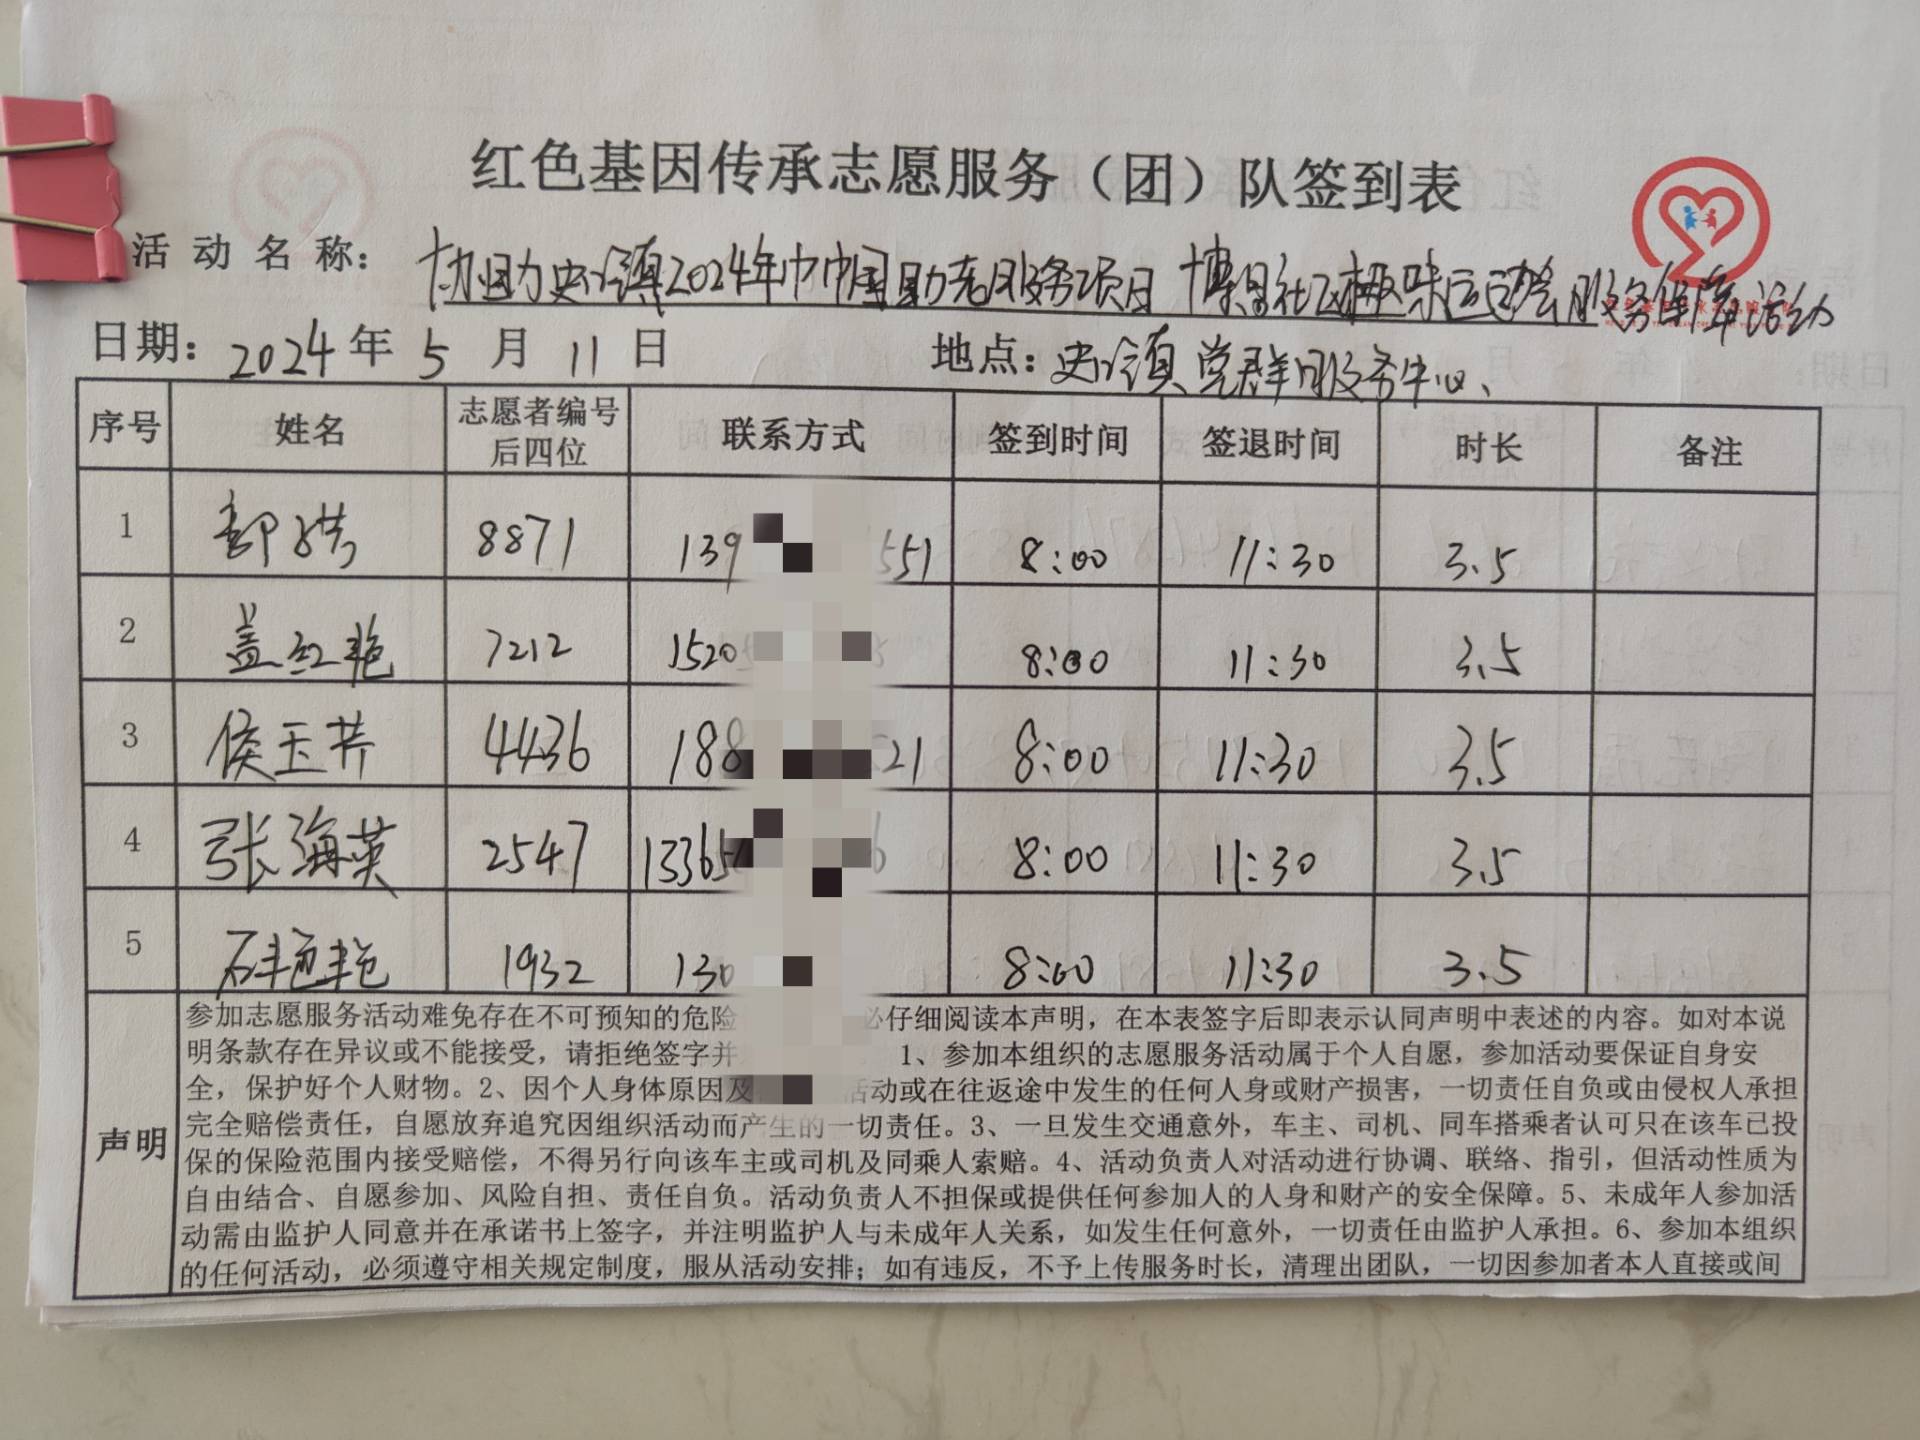 红色基因传承志愿服务（团）队签到表
活动名称：协助史口镇2024年巾帼助老服务项目 博昌社区趣味运动会服务保障活动
日期：2024年5月11日 地点：史口镇党群服务中心
序号 姓名 志愿者编号后四位 联系方式 签到时间 签退时间 时长 备注
1 8871 139 551 8:00 11:30 3.5
2 盖红艳 7212 1520 8:00 11:30 3.5
3 侯玉芹 4436 188 21 8:00 11:30 3.5
4 张海英 2547 1336 8:00 11:30 3.5
5 石艳艳 1932 130 8:00 11:30 3.5
声明
参加志愿服务活动难免存在不可预知的危险 必仔细阅读本声明，在本表签字后即表示认同声明中表述的内容。如对本说
明条款存在异议或不能接受，请拒绝签字并 1、参加本组织的志愿服务活动属于个人自愿，参加活动要保证自身安
全，保护好个人财物。2、因个人身体原因及 活动或在往返途中发生的任何人身或财产损害，一切责任自负或由侵权人承担
完全赔偿责任，自愿放弃追究因组织活动而产生的一切责任。3、一旦发生交通意外，车主、司机、同车搭乘者认可只在该车已投
保的保险范围内接受赔偿，不得另行向该车主或司机及同乘人索赔。4、活动负责人对活动进行协调、联络、指引，但活动性质为
自由结合、自愿参加、风险自担、责任自负。活动负责人不担保或提供任何参加人的人身和财产的安全保障。5、未成年人参加活
动需由监护人同意并在承诺书上签字，并注明监护人与未成年人关系，如发生任何意外，一切责任由监护人承担。6、参加本组织
的任何活动，必须遵守相关规定制度，服从活动安排；如有违反，不予上传服务时长，清理出团队，一切因参加者本人直接或间